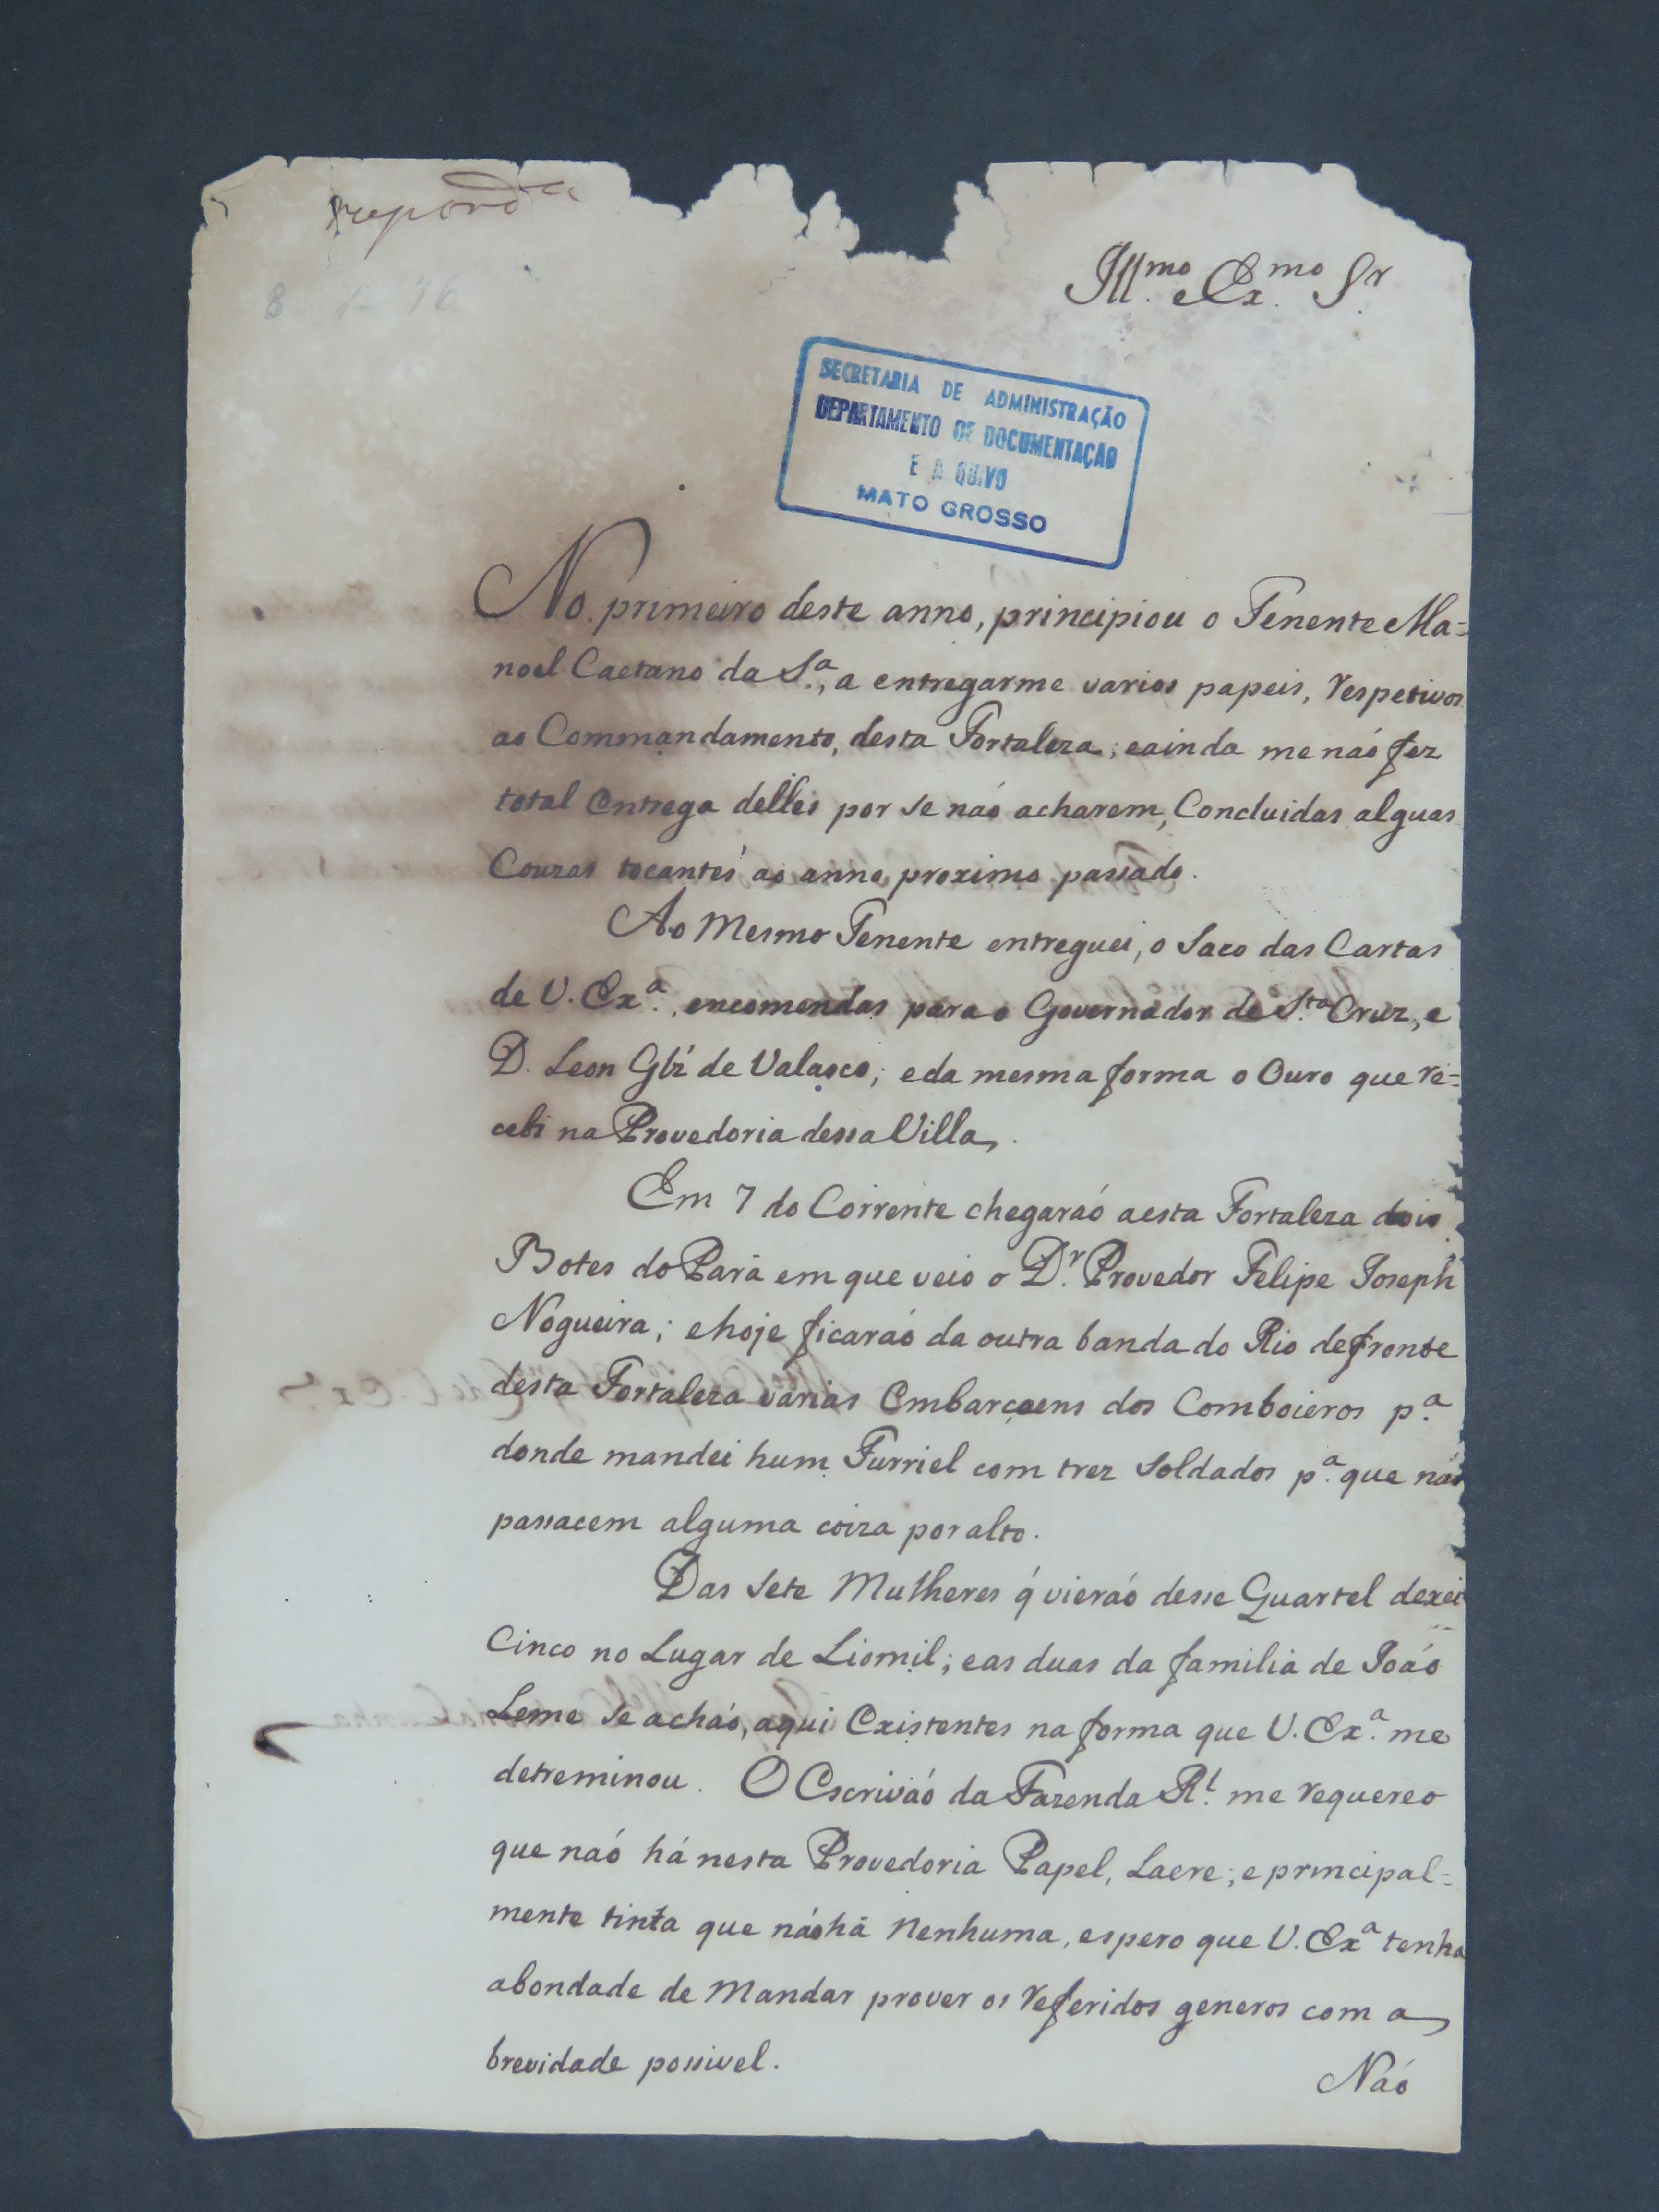 respond.a
Ill.mo e Ex.mo Sr.
SECRETARIA DE ADMINISTRAÇÃO
DEPARTAMENTO DE DOCUMENTAÇÃO
E A QUIVO
MATO GROSSO
No primeiro deste anno, principiou o Tenente Ma=
noel Caetano da S.a, a entregarme varios papeis, respetivos
ao Commandamento, desta Fortaleza; eainda me naó fez
total entrega delles por se naó acharem, Concluidas alguas
Couzas tocantes ao anno proximo passado.
Ao Mesmo Tenente entreguei, o Saco das Cartas
de V. Ex.a, encomendas para o Governador de S.ta Cruz, e
D. Leon Glz' de Valasco; eda mesma forma o Ouro que re=
cebi na Provedoria dessa Villa,.
Em 7 do Corrente chegaraó aesta Fortaleza dois
Botes do Pará em que veio o D.r Provedor Felipe Joseph
Nogueira; ehoje ficaraó da outra banda do Rio defronte
desta Fortaleza varias Embarçaens dos Comboieros p.a
donde mandei hum Furriel com trez Soldados p.a que naó
passacem alguma coiza por alto.
Das Sete Mulheres q́ vieraó desse Quartel dexei
Cinco no Lugar de Liomil; eas duas da familia de Joaó
Leme Se achaó, aqui Existentes na forma que V. Ex.a me
detreminou. O Escrivaó da Fazenda R.l me requereo
que naó há nesta Provedoria Papel, Lacre; e principal=
mente tinta que náohá Nenhuma, espero que V. Ex.a tenha
abondade de Mandar prover os referidos generos com a
brevidade possivel.
Naó